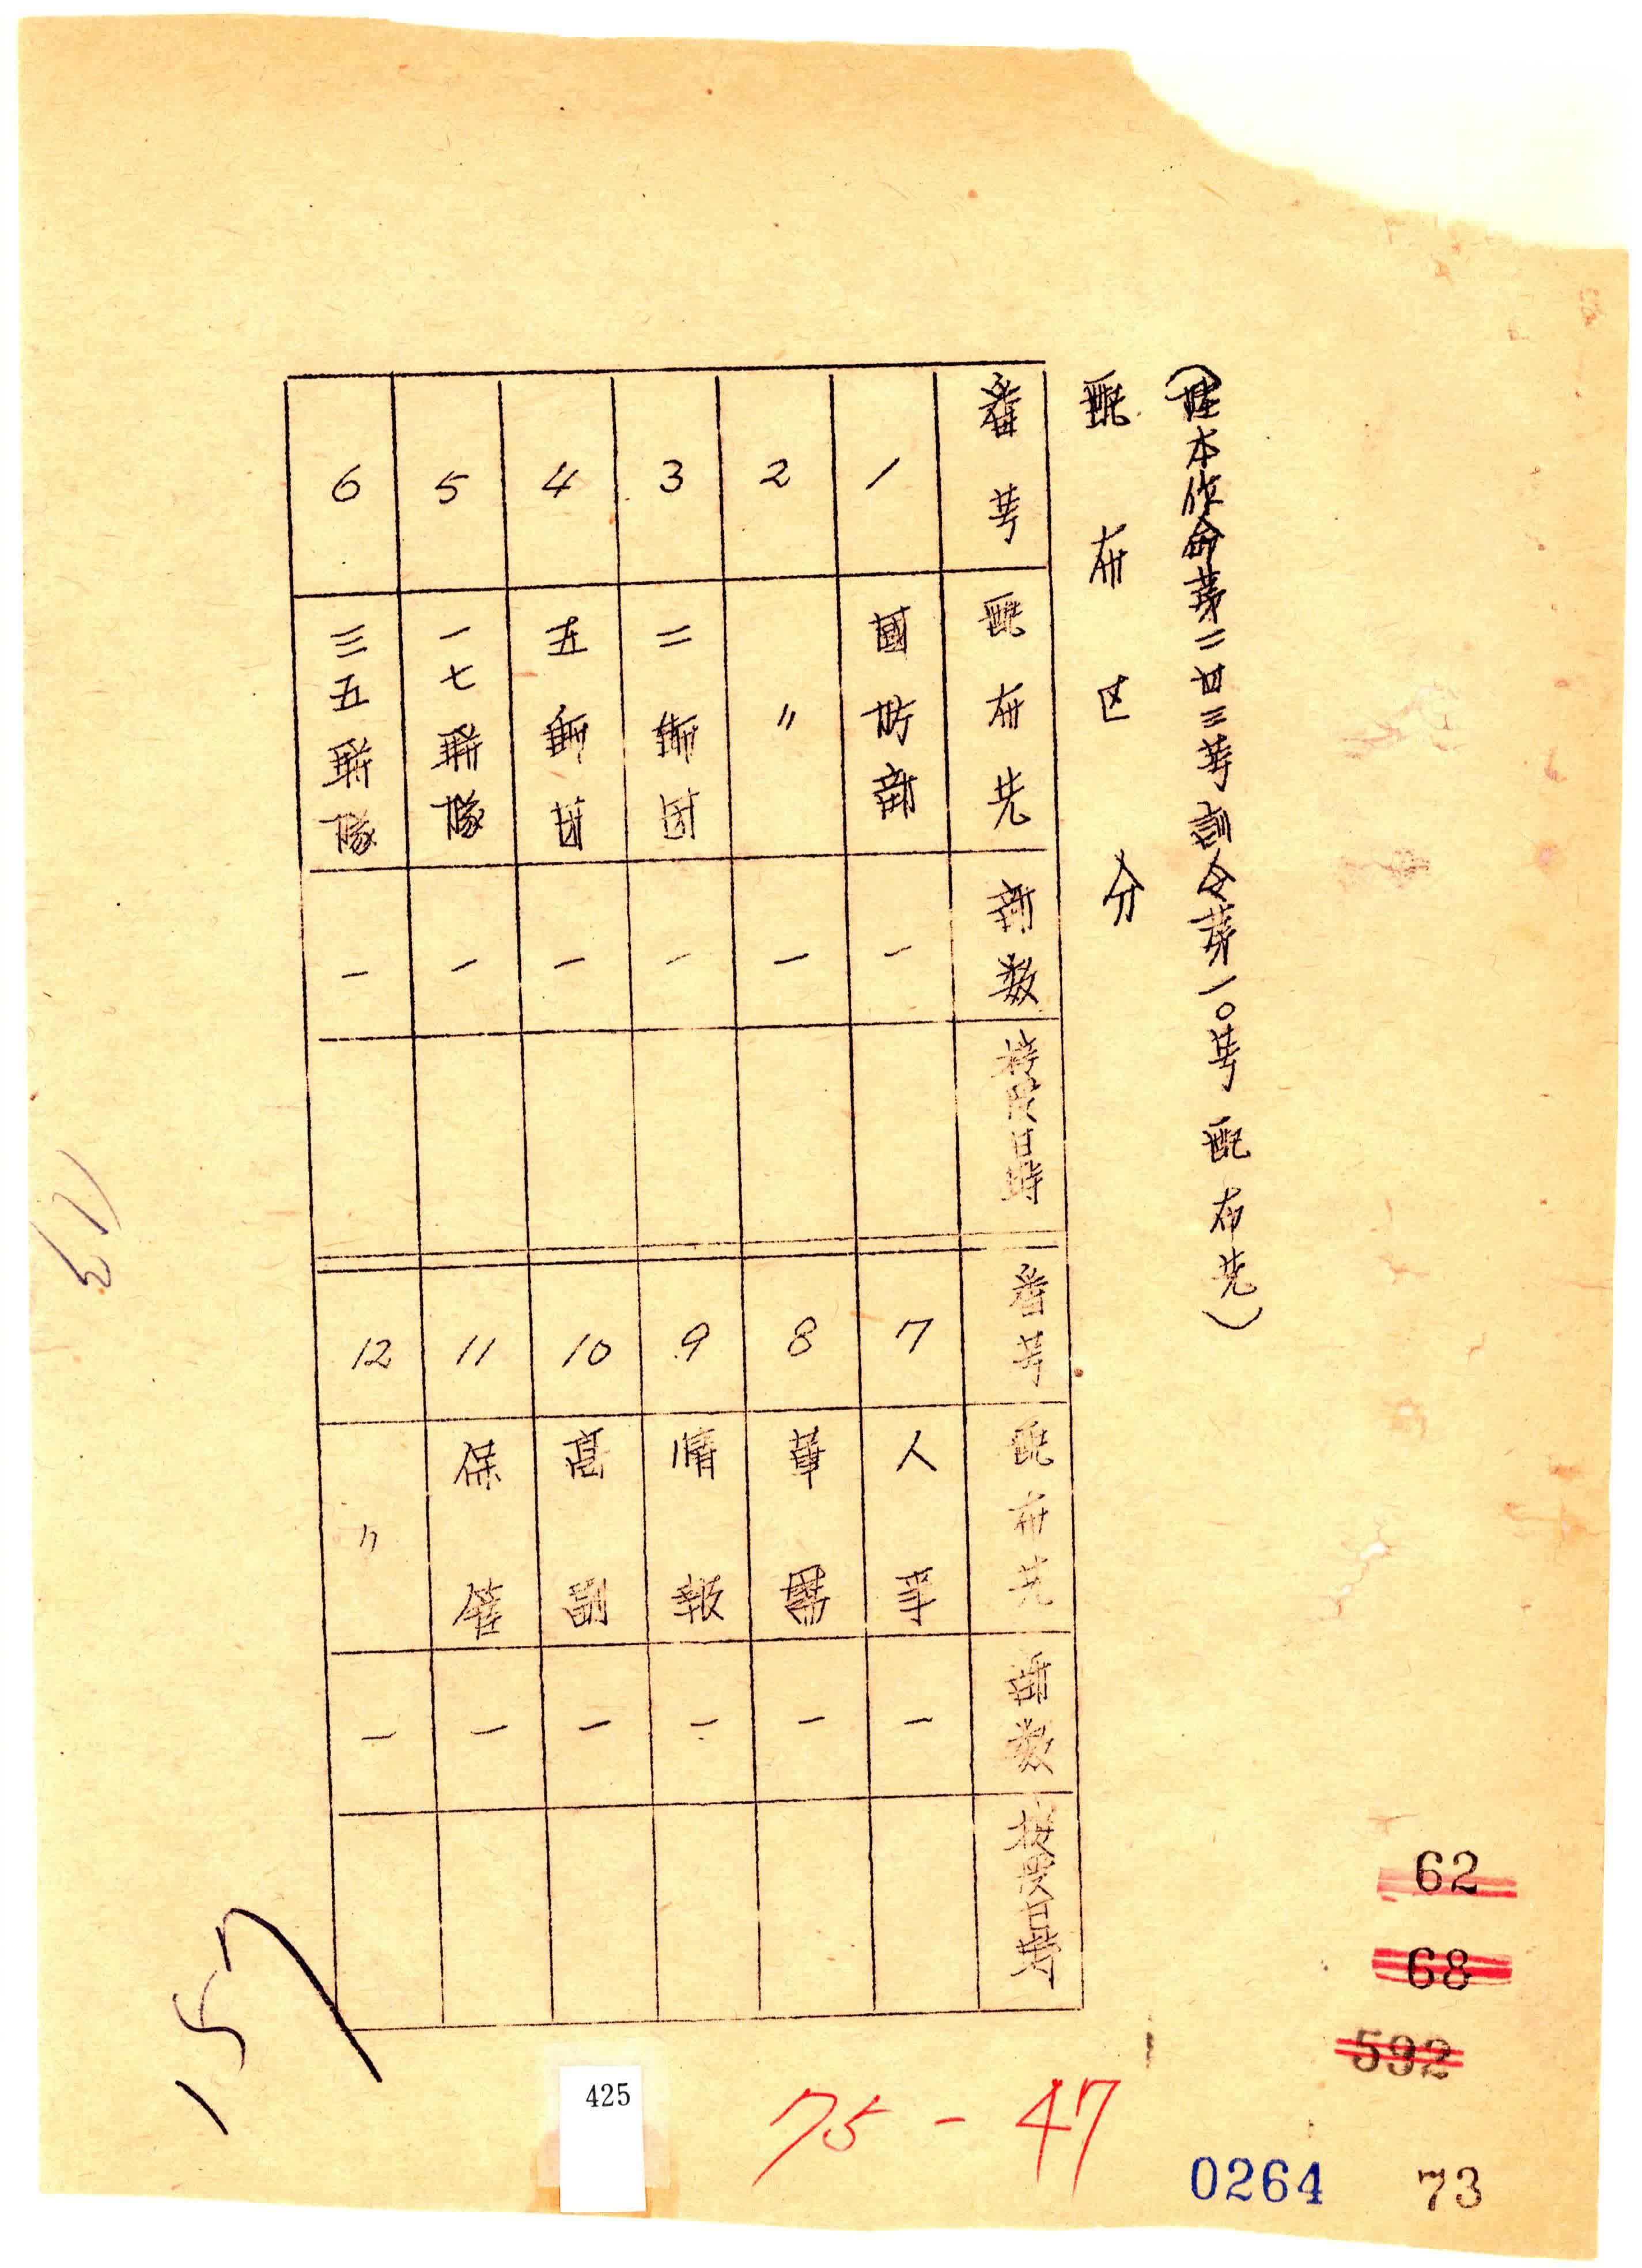 (陸本作命芽二四三号訓令芽一〇号 配布先)
配布区分
番号 配布先 部数 接受日時 番号 配布先 部数 接受日時
1 國防部 一 7 人事 一
2 〃 一 8 軍需 一
3 二師团 一 9 情報 一
4 五師团 一 10 高副 一
5 一七聯隊 一 11 保管 一
6 三五聯隊 一 12 〃 一
157
425
75-47
62
68
592
0264 73